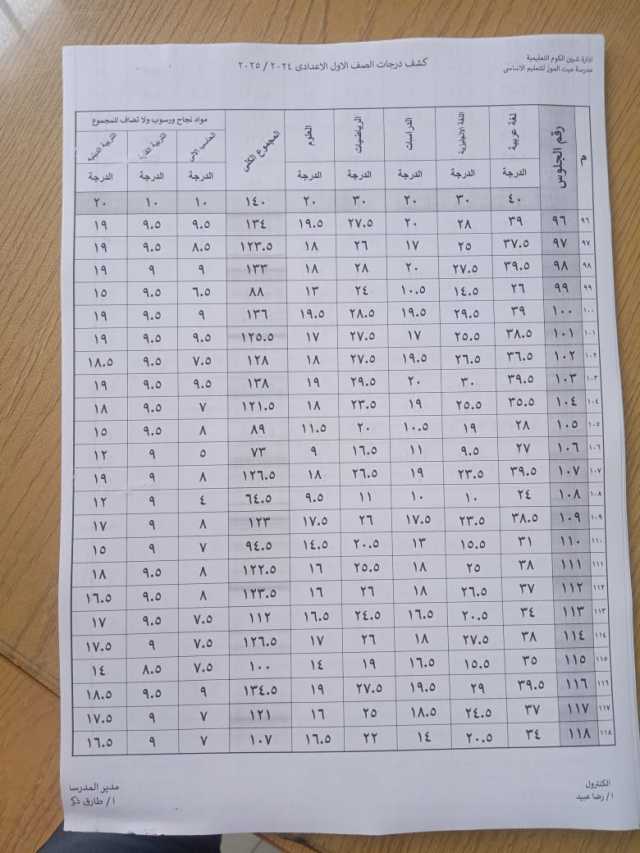 ادارة شبين الكوم التعليمية
مدرسة ميت الموز للتعليم الاساسى
كشف درجات الصف الاول الاعدادى ٢٠٢٤ / ٢٠٢٥
م رقم الجلوس لغة عربية اللغة الانجليزية الدراسات الرياضيات العلوم المجموع الكلى مواد نجاح ورسوب ولا تضاف للمجموع
الحاسب الالى التربية الفنية التربية الدينية
الدرجة الدرجة الدرجة الدرجة الدرجة الدرجة الدرجة الدرجة الدرجة
٤٠ ٣٠ ٢٠ ٣٠ ٢٠ ١٤٠ ١٠ ١٠ ٢٠
٩٦ ٩٦ ٣٩ ٢٨ ٢٠ ٢٧.٥ ١٩.٥ ١٣٤ ٩.٥ ٩.٥ ١٩
٩٧ ٩٧ ٣٧.٥ ٢٥ ١٧ ٢٦ ١٨ ١٢٣.٥ ٨.٥ ٩.٥ ١٩
٩٨ ٩٨ ٣٩.٥ ٢٧.٥ ٢٠ ٢٨ ١٨ ١٣٣ ٩ ٩ ١٩
٩٩ ٩٩ ٢٦ ١٤.٥ ١٠.٥ ٢٤ ١٣ ٨٨ ٦.٥ ٩.٥ ١٥
١٠٠ ١٠٠ ٣٩ ٢٩.٥ ١٩.٥ ٢٨.٥ ١٩.٥ ١٣٦ ٩ ٩.٥ ١٩
١٠١ ١٠١ ٣٨.٥ ٢٥.٥ ١٧ ٢٧.٥ ١٧ ١٢٥.٥ ٩.٥ ٩.٥ ١٩
١٠٢ ١٠٢ ٣٦.٥ ٢٦.٥ ١٩.٥ ٢٧.٥ ١٨ ١٢٨ ٧.٥ ٩.٥ ١٨.٥
١٠٣ ١٠٣ ٣٩.٥ ٣٠ ٢٠ ٢٩.٥ ١٩ ١٣٨ ٩.٥ ٩.٥ ١٩
١٠٤ ١٠٤ ٣٥.٥ ٢٥.٥ ١٩ ٢٣.٥ ١٨ ١٢١.٥ ٧ ٩.٥ ١٨
١٠٥ ١٠٥ ٢٨ ١٩ ١٠.٥ ٢٠ ١١.٥ ٨٩ ٨ ٩.٥ ١٥
١٠٦ ١٠٦ ٢٧ ٩.٥ ١١ ١٦.٥ ٩ ٧٣ ٥ ٩ ١٢
١٠٧ ١٠٧ ٣٩.٥ ٢٣.٥ ١٩ ٢٦.٥ ١٨ ١٢٦.٥ ٨ ٩ ١٩
١٠٨ ١٠٨ ٢٤ ١٠ ١٠ ١١ ٩.٥ ٦٤.٥ ٤ ٩ ١٢
١٠٩ ١٠٩ ٣٨.٥ ٢٣.٥ ١٧.٥ ٢٦ ١٧.٥ ١٢٣ ٨ ٩ ١٧
١١٠ ١١٠ ٣١ ١٥.٥ ١٣ ٢٠.٥ ١٤.٥ ٩٤.٥ ٧ ٩ ١٥
١١١ ١١١ ٣٨ ٢٥ ١٨ ٢٥.٥ ١٦ ١٢٢.٥ ٨ ٩.٥ ١٨
١١٢ ١١٢ ٣٧ ٢٦.٥ ١٨ ٢٦ ١٦ ١٢٣.٥ ٨ ٩.٥ ١٦.٥
١١٣ ١١٣ ٣٤ ٢٠.٥ ١٦.٥ ٢٤.٥ ١٦.٥ ١١٢ ٧.٥ ٩.٥ ١٧
١١٤ ١١٤ ٣٨ ٢٧.٥ ١٨ ٢٦ ١٧ ١٢٦.٥ ٧.٥ ٩ ١٧.٥
١١٥ ١١٥ ٣٥ ١٥.٥ ١٦.٥ ١٩ ١٤ ١٠٠ ٧.٥ ٨.٥ ١٤
١١٦ ١١٦ ٣٩.٥ ٢٩ ١٩.٥ ٢٧.٥ ١٩ ١٣٤.٥ ٩ ٩.٥ ١٨.٥
١١٧ ١١٧ ٣٧ ٢٤.٥ ١٨.٥ ٢٥ ١٦ ١٢١ ٧ ٩ ١٧.٥
١١٨ ١١٨ ٣٤ ٢٠.٥ ١٤ ٢٢ ١٦.٥ ١٠٧ ٧ ٩ ١٦.٥
الكنترول
ا / رضا عبيد
مدير المدرسا
ا / طارق ذك